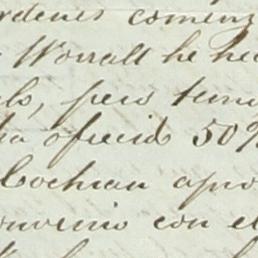 rdenes comenz
Worrall he he
pero tem
ha ofrecido 50%
Cochran apro
onvenio con el